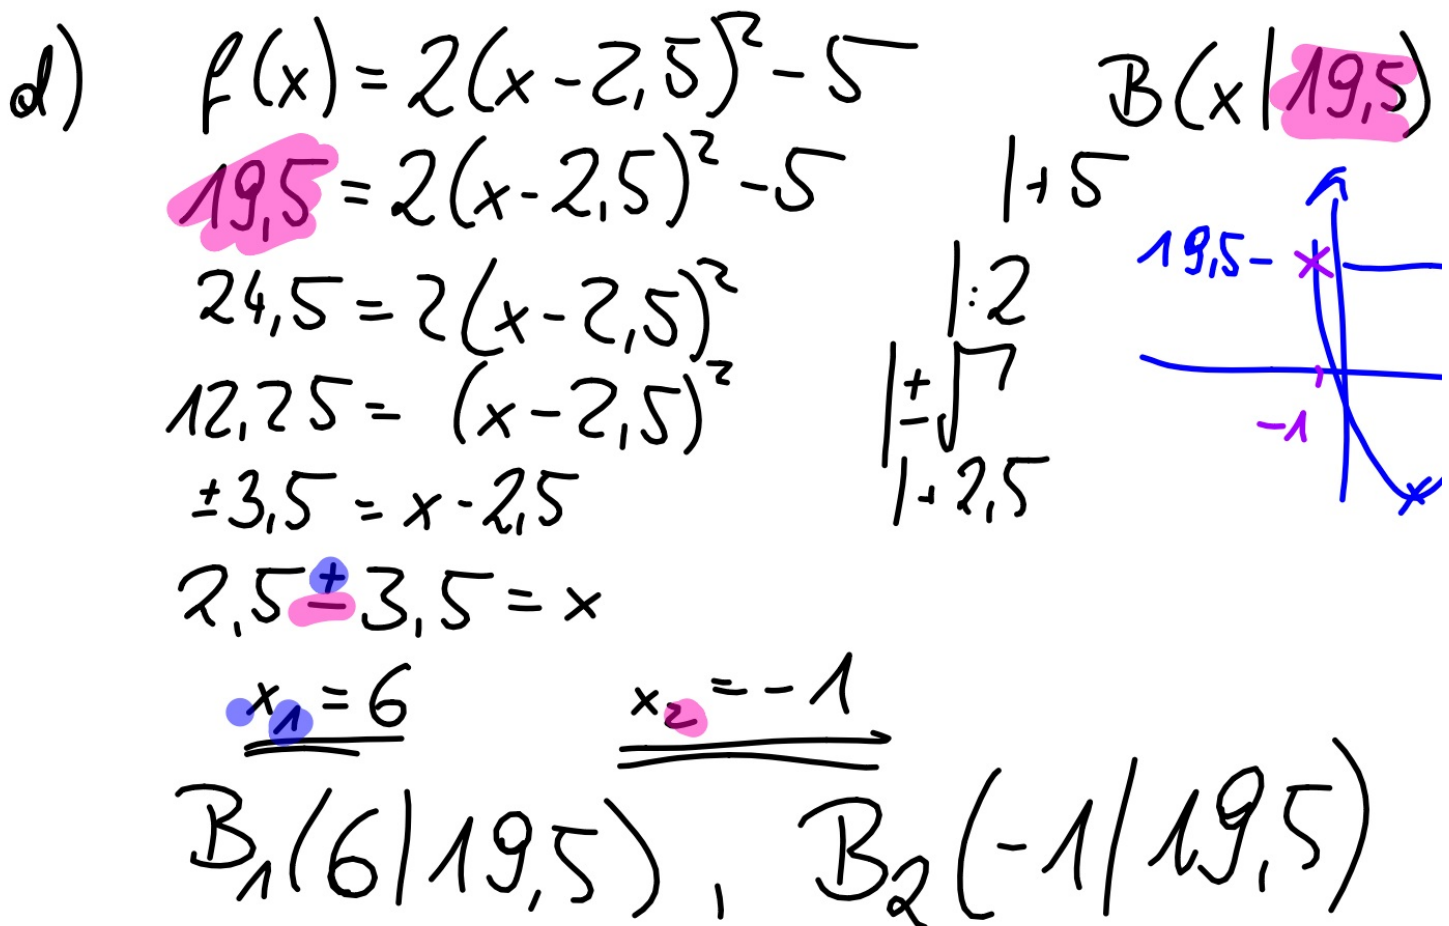 d) f(x) = 2(x-2,5)² - 5 B(x|19,5)
19,5 = 2(x-2,5)² - 5 |+5
24,5 = 2(x-2,5)² |:2
12,25 = (x-2,5)² |±√
±3,5 = x-2,5 |+2,5
2,5±3,5 = x
x₁ = 6 x₂ = -1
B₁(6|19,5), B₂(-1|19,5)
19,5
-1